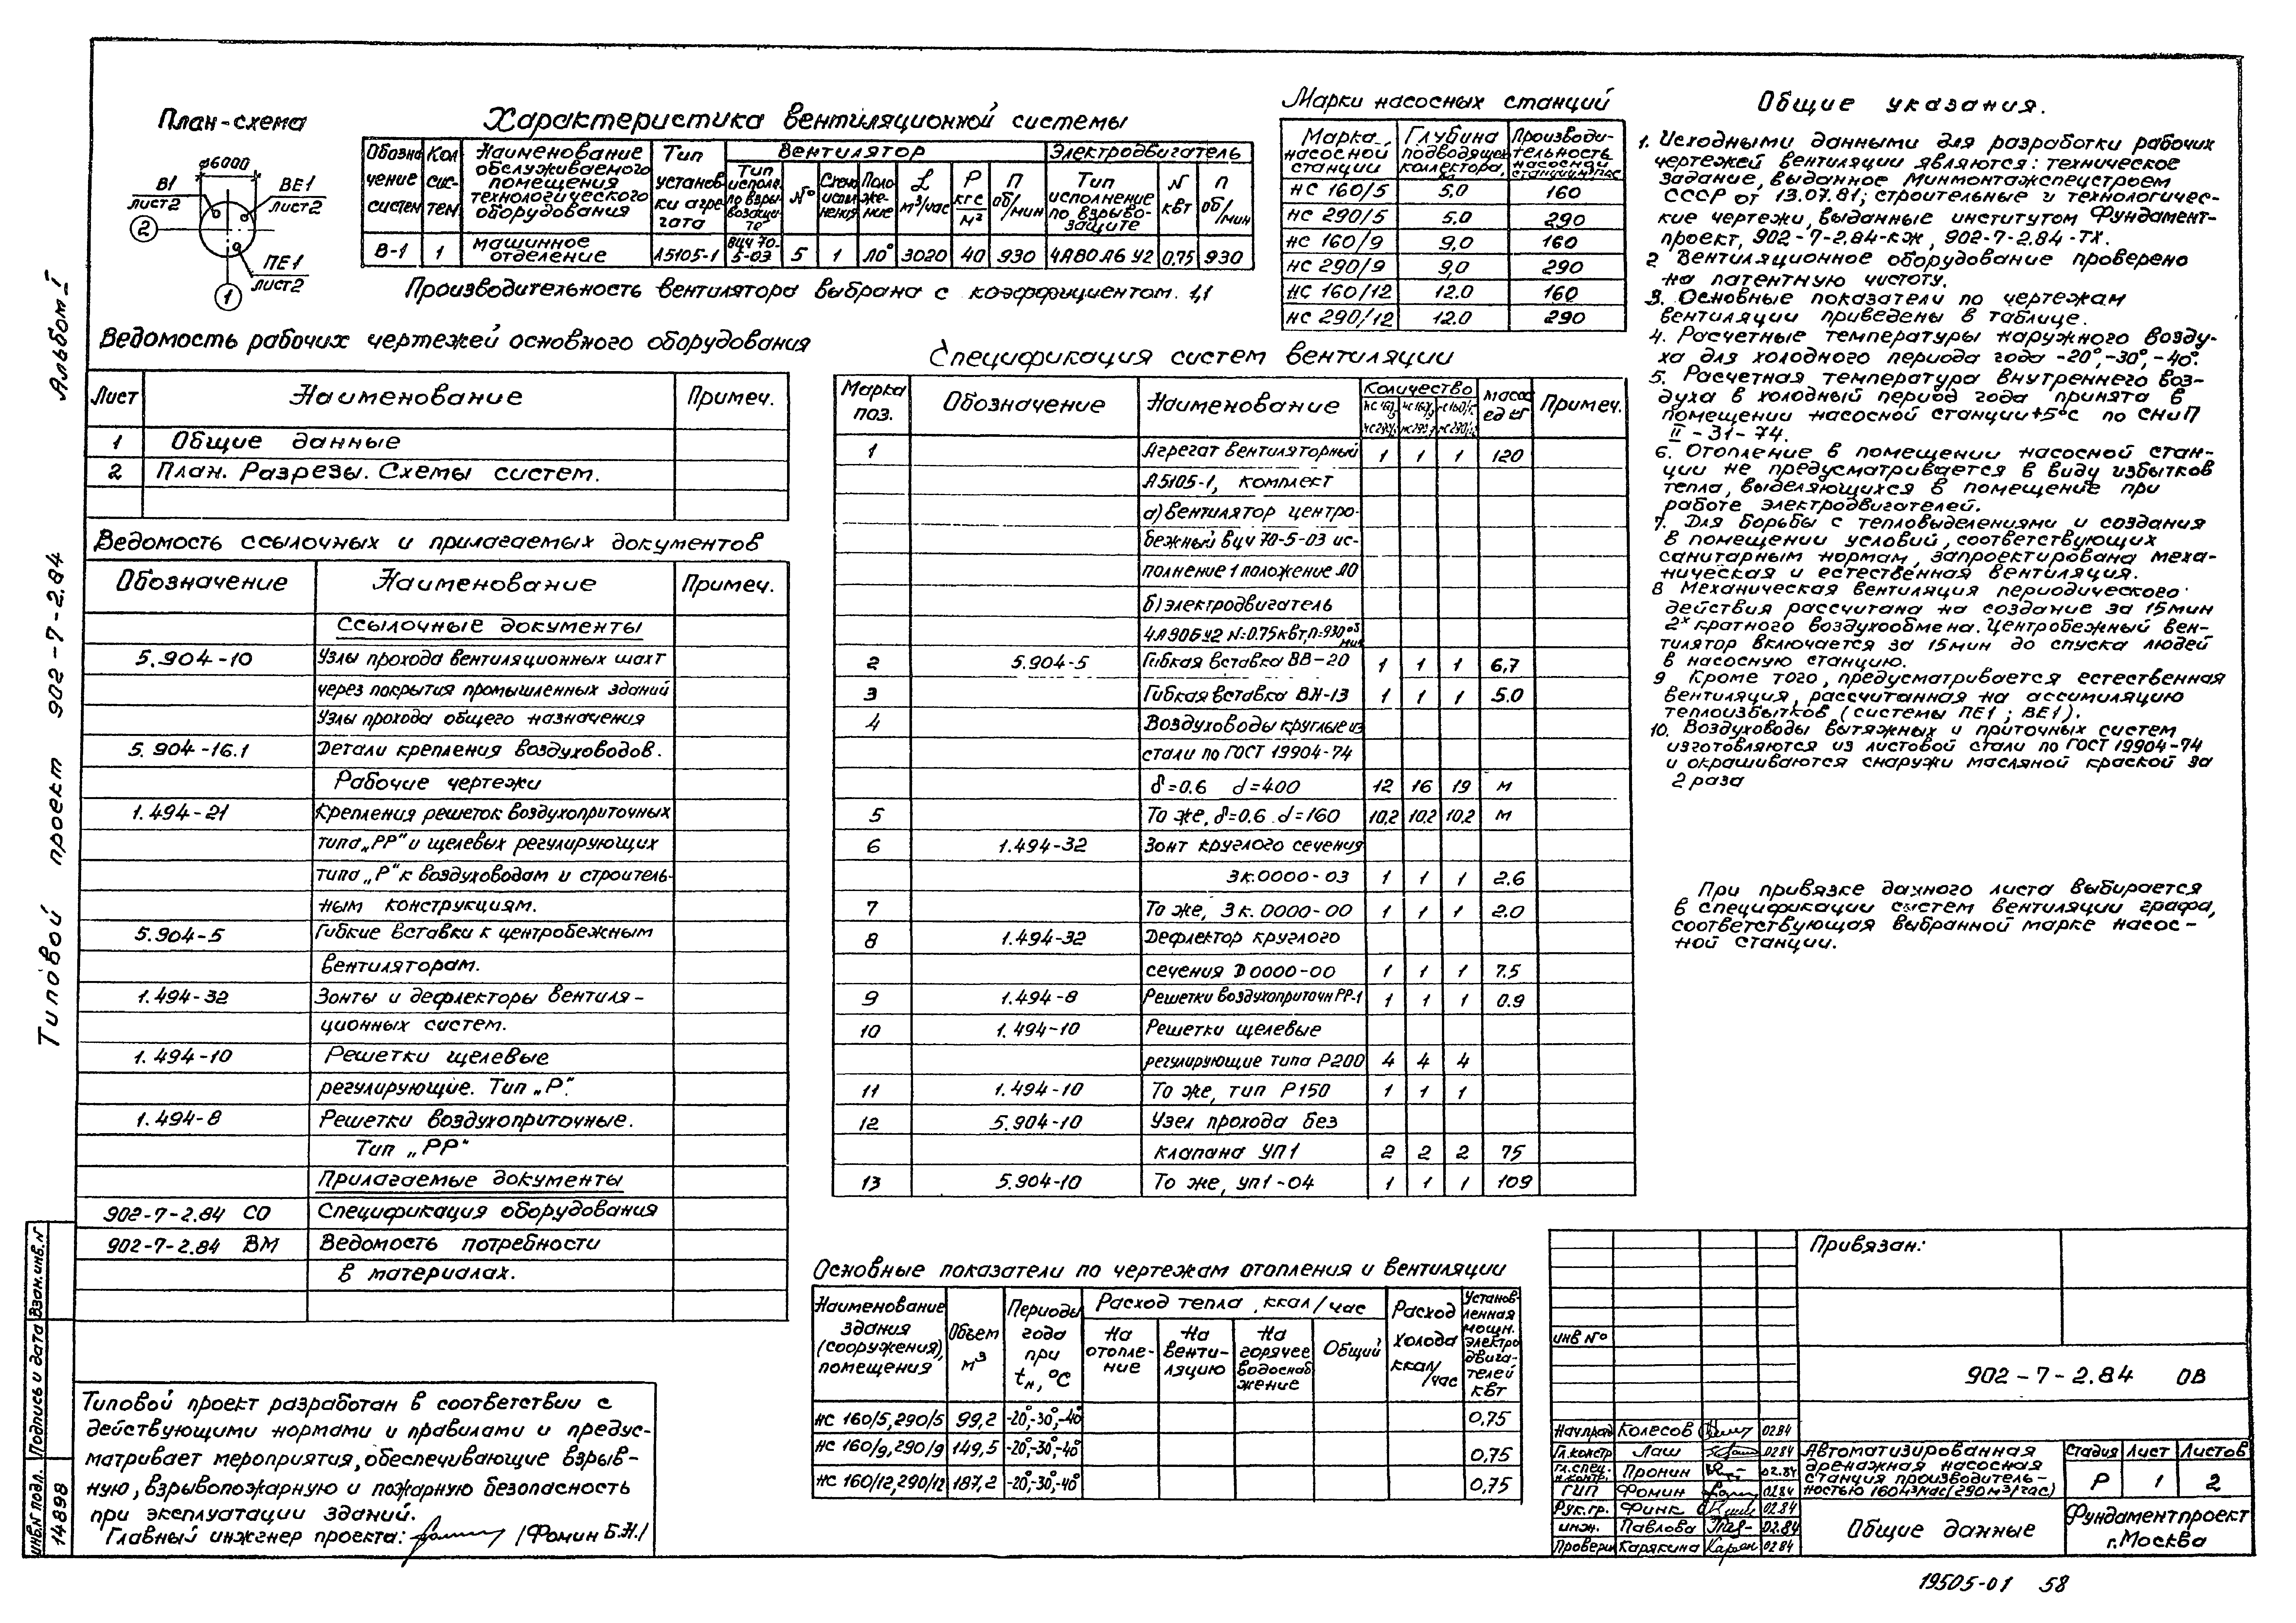 План-схема
ø6000
В1
лист2
ВЕ1
лист2
2
ПЕ1
лист2
1
Характеристика вентиляционной системы
Обозначение систем | Кол систем | Наименование обслуживаемого помещения технологического оборудования | Тип установки агрегата | Вентилятор | Электродвигатель
Тип исполн. по взрывозащите | № | Схема исполнения | Положение | L м³/час | Р кгс/м² | П об/мин | Тип исполнение по взрывозащите | N квт | п об/мин
В-1 | 1 | машинное отделение | А5105-1 | ВЦЧ 70-5-03 | 5 | 1 | Л0° | 3020 | 40 | 930 | 4А80А6 У2 | 0,75 | 930
Производительность вентилятора выбрана с коэффициентом 1,1
Марки насосных станций
Марка насосной станции | Глубина подводящего коллектора, м | Производительность насосной станции м³/час
НС 160/5 | 5,0 | 160
НС 290/5 | 5.0 | 290
НС 160/9 | 9,0 | 160
НС 290/9 | 9,0 | 290
НС 160/12 | 12.0 | 160
НС 290/12 | 12.0 | 290
Общие указания.
1. Исходными данными для разработки рабочих
чертежей вентиляции являются: техническое
задание, выданное Минмонтажспецстроем
СССР от 13.07.81; строительные и технологичес-
кие чертежи, выданные институтом Фундамент-
проект, 902-7-2.84-КЖ, 902-7-2.84-ТХ.
2 Вентиляционное оборудование проверено
на патентную чистоту.
3. Основные показатели по чертежам
вентиляции приведены в таблице.
4. Расчетные температуры наружного возду-
ха для холодного периода года -20°,-30°,-40°.
5. Расчетная температура внутреннего воз-
духа в холодный период года принята в
помещении насосной станции +5°с по СНиП
II-31-74.
6. Отопление в помещении насосной стан-
ции не предусматривается в виду избытков
тепла, выделяющихся в помещение при
работе электродвигателей.
7. Для борьбы с тепловыделениями и создания
в помещении условий, соответствующих
санитарным нормам, запроектирована меха-
ническая и естественная вентиляция.
8 Механическая вентиляция периодического
действия рассчитана на создание за 15мин
2х кратного воздухообмена. Центробежный вен-
тилятор включается за 15мин до спуска людей
в насосную станцию.
9 Кроме того, предусматривается естественная
вентиляция, рассчитанная на ассимиляцию
теплоизбытков (системы ПЕ1; ВЕ1).
10. Воздуховоды вытяжных и приточных систем
изготовляются из листовой стали по ГОСТ 19904-74
и окрашиваются снаружи масляной краской за
2 раза
При привязке данного листа выбирается
в спецификации систем вентиляции графа,
соответствующая выбранной марке насос-
ной станции.
Ведомость рабочих чертежей основного оборудования
Лист | Наименование | Примеч.
1 | Общие данные
2 | План. Разрезы. Схемы систем.
Ведомость ссылочных и прилагаемых документов
Обозначение | Наименование | Примеч.
Ссылочные документы
5.904-10 | Узлы прохода вентиляционных шахт
через покрытия промышленных зданий
Узлы прохода общего назначения
5.904-16.1 | Детали крепления воздуховодов.
Рабочие чертежи
1.494-21 | Крепления решеток воздухоприточных
типа „РР" и щелевых регулирующих
типа „Р" к воздуховодам и строитель-
ным конструкциям.
5.904-5 | Гибкие вставки к центробежным
вентиляторам.
1.494-32 | Зонты и дефлекторы вентиля-
ционных систем.
1.494-10 | Решетки щелевые
регулирующие. Тип „Р".
1.494-8 | Решетки воздухоприточные.
Тип „РР"
Прилагаемые документы
902-7-2.84 СО | Спецификация оборудования
902-7-2.84 ВМ | Ведомость потребности
в материалах.
Спецификация систем вентиляции
Марка поз. | Обозначение | Наименование | Количество | масса ед кг | Примеч.
1 | Агрегат вентиляторный | 1 | 1 | 1 | 120
А5105-1, комплект
а) вентилятор центро-
бежный ВЦЧ 70-5-03 ис-
полнение 1 положение Л0
б) электродвигатель
4А90Б У2 N=0.75квт, п=930 об/мин
2 | 5.904-5 | Гибкая вставка ВВ-20 | 1 | 1 | 1 | 6,7
3 | Гибкая вставка ВН-13 | 1 | 1 | 1 | 5.0
4 | Воздуховоды круглые из
стали по ГОСТ 19904-74
δ=0.6 d=400 | 12 | 16 | 19 | м
5 | То же, δ=0.6 d=160 | 10,2 | 10,2 | 10,2 | м
6 | 1.494-32 | Зонт круглого сечения
Зк.0000-03 | 1 | 1 | 1 | 2.6
7 | То же, Зк.0000-00 | 1 | 1 | 1 | 2.0
8 | 1.494-32 | Дефлектор круглого
сечения Д0000-00 | 1 | 1 | 1 | 7.5
9 | 1.494-8 | Решетки воздухоприточн РР-1 | 1 | 1 | 1 | 0.9
10 | 1.494-10 | Решетки щелевые
регулирующие типа Р200 | 4 | 4 | 4
11 | 1.494-10 | То же, тип Р150 | 1 | 1 | 1
12 | 5.904-10 | Узел прохода без
клапана УП1 | 2 | 2 | 2 | 75
13 | 5.904-10 | То же, УП1-04 | 1 | 1 | 1 | 109
Основные показатели по чертежам отопления и вентиляции
Наименование здания (сооружения), помещения | Объем м³ | Периоды года при tн, °С | Расход тепла, ккал/час | Расход холода ккал/час | Установленная мощн. электродвигателей квт
На отопление | На вентиляцию | На горячее водоснабжение | Общий
НС 160/5, 290/5 | 99,2 | -20°,-30°,-40° | 0,75
НС 160/9, 290/9 | 149,5 | -20°,-30°,-40° | 0,75
НС 160/12, 290/12 | 187,2 | -20°,-30°,-40° | 0,75
Типовой проект разработан в соответствии с
действующими нормами и правилами и предус-
матривает мероприятия, обеспечивающие взрыв-
ную, взрывопожарную и пожарную безопасность
при эксплуатации зданий.
Главный инженер проекта: /Фомин Б.Н./
Привязан:
инв №
902-7-2.84 ОВ
Нач.пр.отд Колесов 02.84
Гл.констр Лаш 02.84
Гл.спец. н.контр. Пронин 02.84
ГИП Фомин 02.84
Рук.гр. Финк 02.84
инж. Павлова 02.84
Проверил Карякина 02.84
Автоматизированная
дренажная насосная
станция производитель-
ностью 160м³/час (290м³/час)
Стадия | Лист | Листов
Р | 1 | 2
Общие данные
Фундаментпроект
г.Москва
19505-01 58
Типовой проект 902-7-2.84 Альбом I
Инв.№ подл. | Подпись и дата | Взам.инв.№
14898